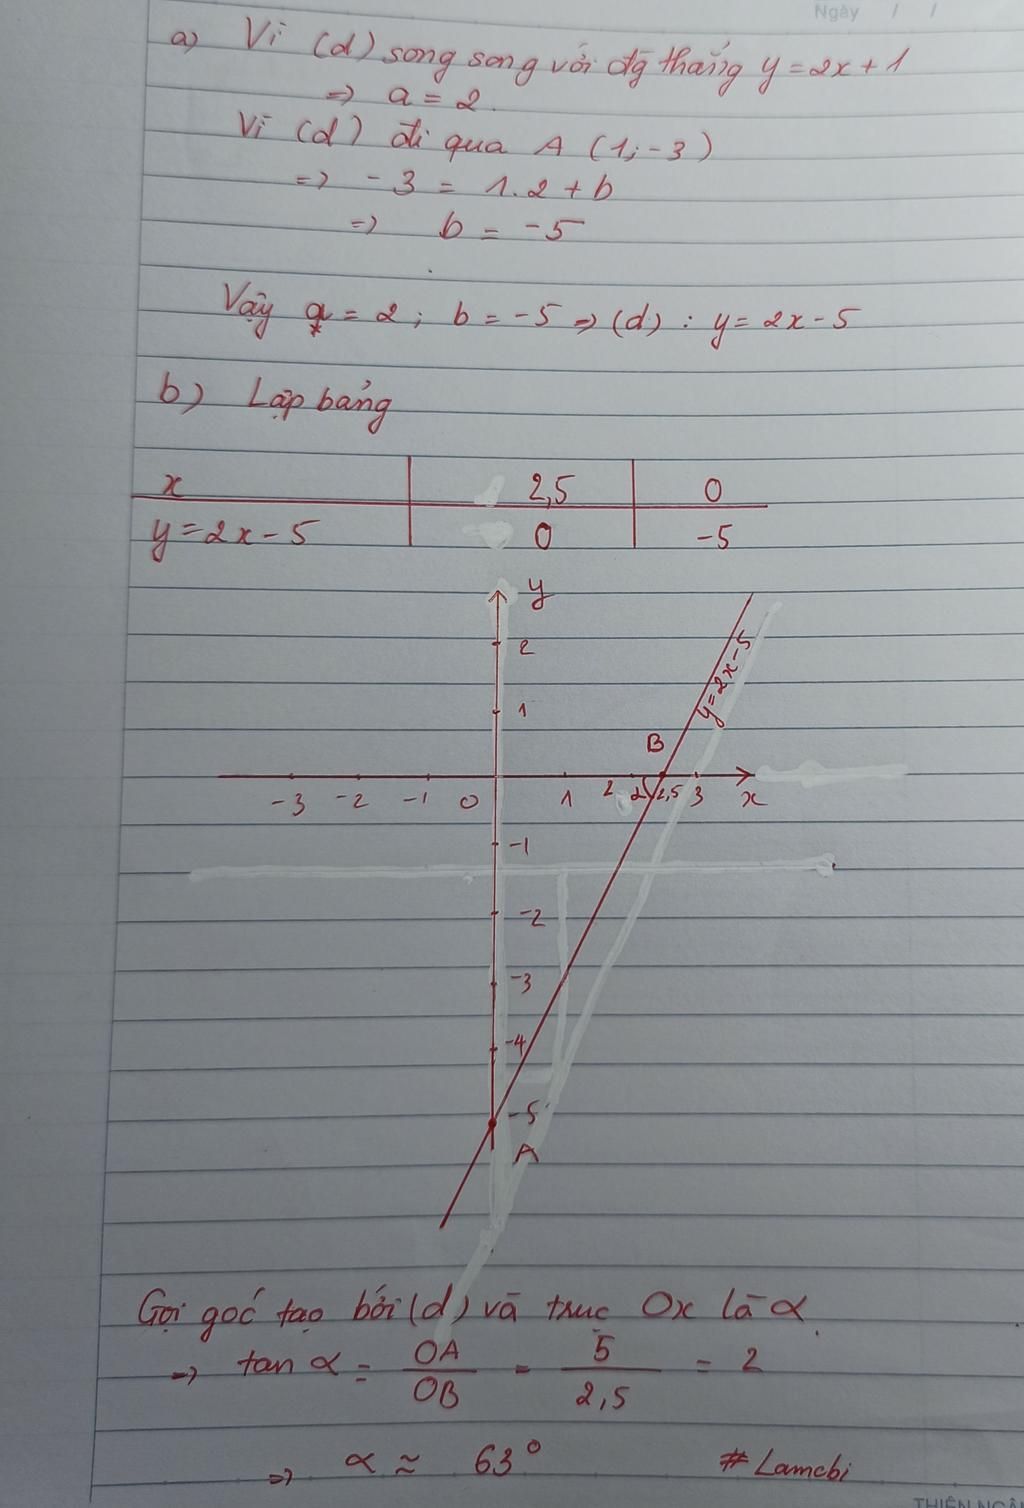 Ngày / /
a) Vì (d) song song với đg thẳng y = 2x + 1
=> a = 2.
Vì (d) đi qua A (1; -3)
=> -3 = 1.2 + b
=> b = -5
Vậy a = 2; b = -5 => (d) : y = 2x - 5
b) Lập bảng
x 2,5 0
y = 2x - 5 0 -5
y
2
y = 2x - 5
1
B
-3 -2 -1 0 1 2 α 2,5 3 x
-1
-2
-3
-4
-5
A
Gọi góc tạo bởi (d) và trục Ox là α.
=> tan α = OA/OB = 5/2,5 = 2
=> α ≈ 63°
# Lamcbi